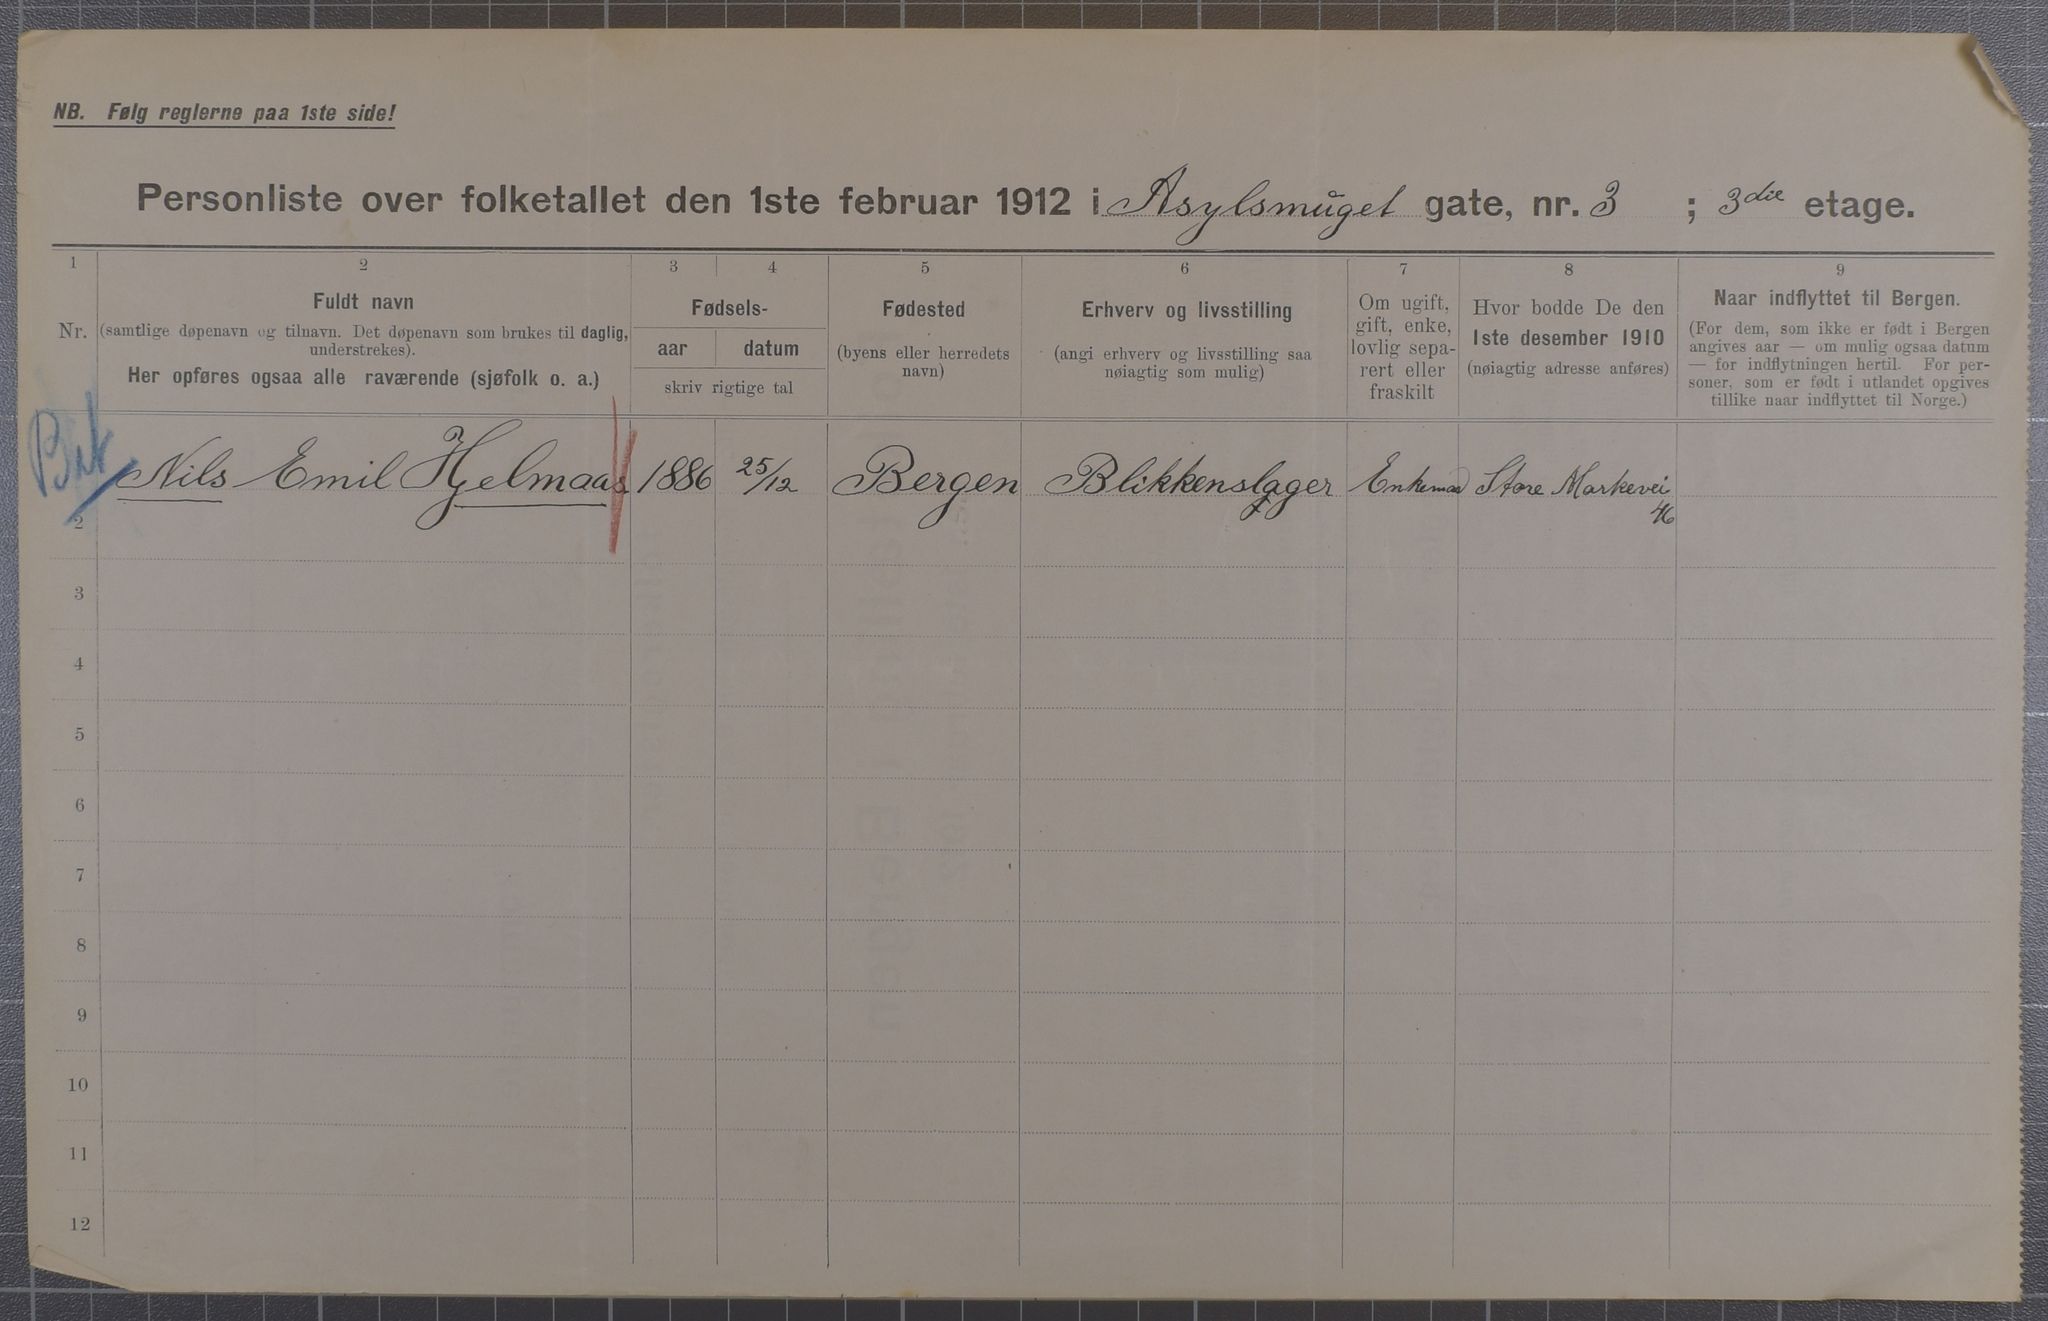 NB. Følg reglerne paa 1ste side!
Personliste over folketallet den 1ste februar 1912 i Asylsmuget gate, nr. 3 ; 3die etage.
1 2 3 4 5 6 7 8 9
Nr.
Fuldt navn
(samtlige døpenavn og tilnavn. Det døpenavn som brukes til daglig,
understrekes).
Her opføres ogsaa alle raværende (sjøfolk o. a.)
Fødsels-
aar datum
skriv rigtige tal
Fødested
(byens eller herredets
navn)
Erhverv og livsstilling
(angi erhverv og livsstilling saa
nøiagtig som mulig)
Om ugift,
gift, enke,
lovlig sepa-
rert eller
fraskilt
Hvor bodde De den
1ste desember 1910
(nøiagtig adresse anføres)
Naar indflyttet til Bergen.
(For dem, som ikke er født i Bergen
angives aar — om mulig ogsaa datum
— for indflytningen hertil. For per-
soner, som er født i utlandet opgives
tillike naar indflyttet til Norge.)
Nils Emil Hjelmaas 1886 25/12 Bergen Blikkenslager Enkemand Store Markevei
46
2
3
4
5
6
7
8
9
10
11
12